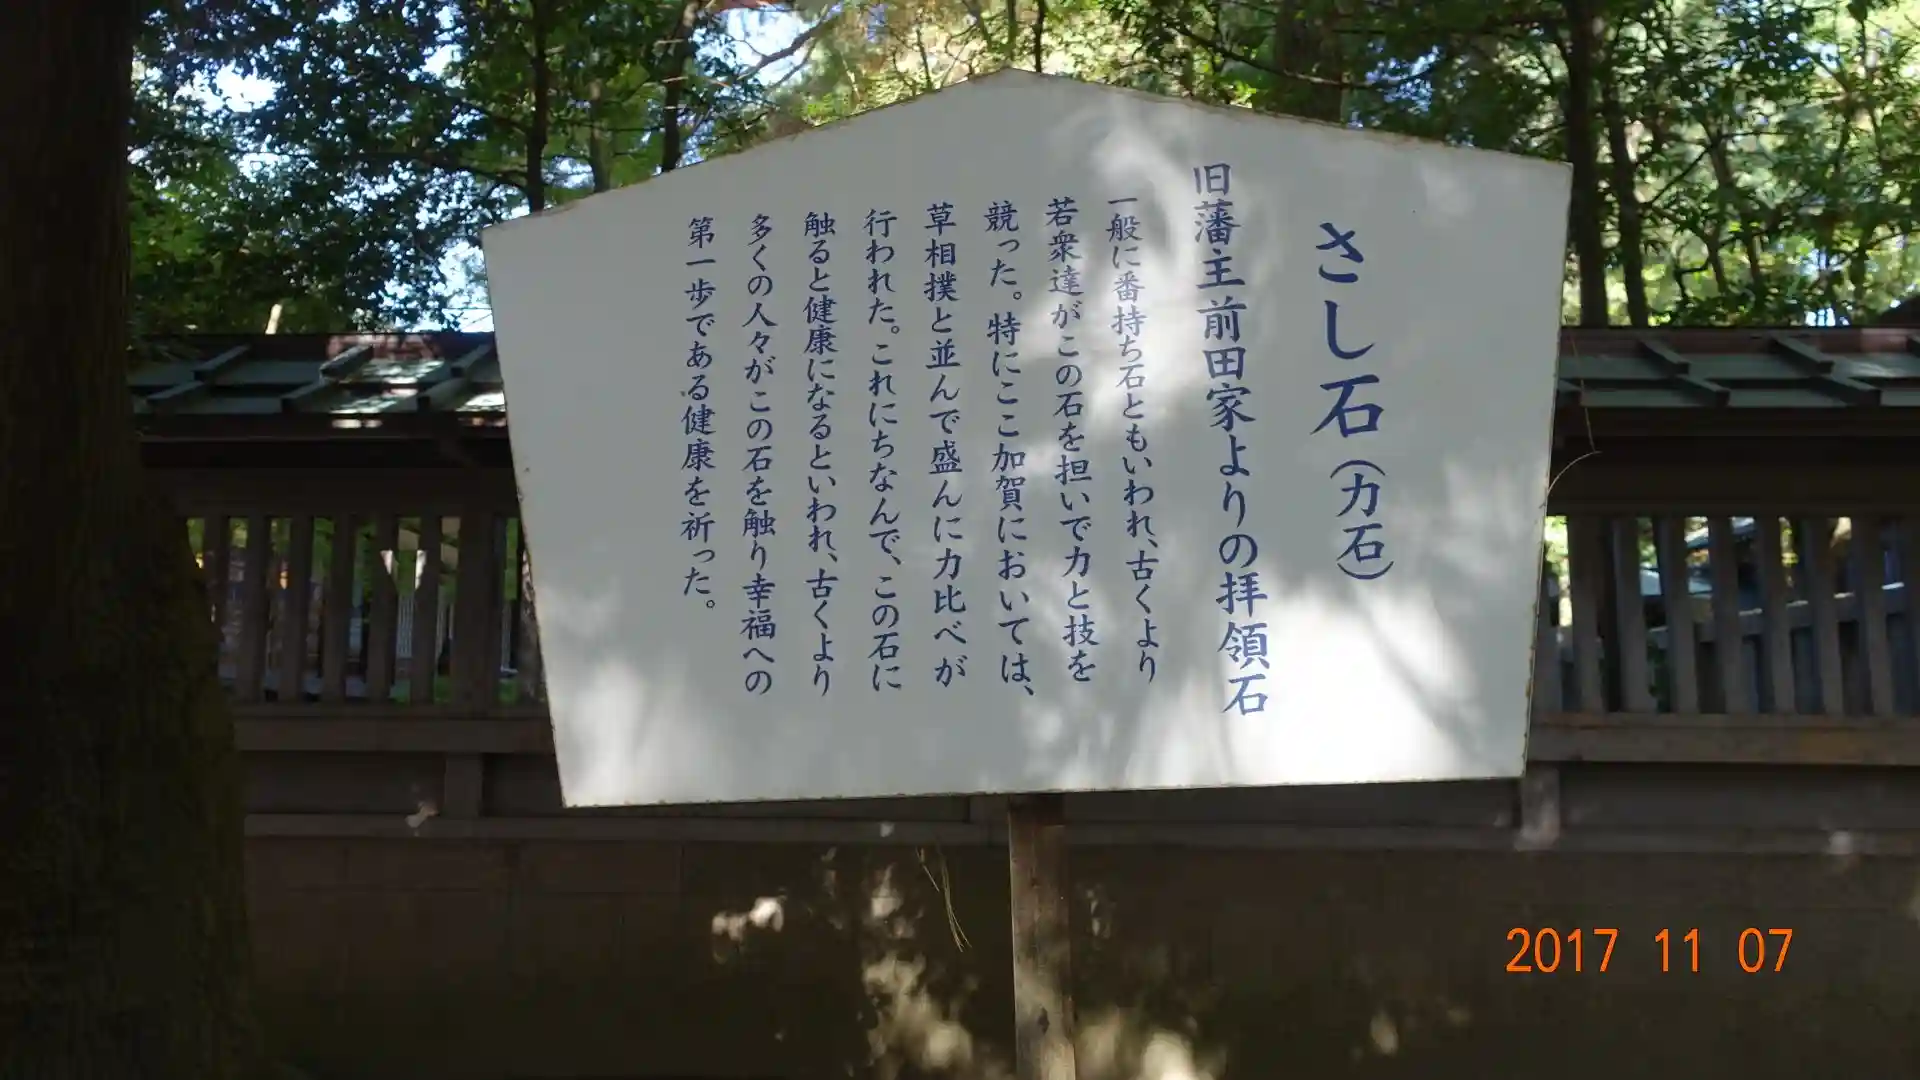 さし石（力石）
旧藩主前田家よりの拝領石
一般に番持ち石ともいわれ、古くより
若衆達がこの石を担いで力と技を
競った。特にここ加賀においては、
草相撲と並んで盛んに力比べが
行われた。これにちなんで、この石に
触ると健康になるといわれ、古くより
多くの人々がこの石を触り幸福への
第一歩である健康を祈った。
2017 11 07